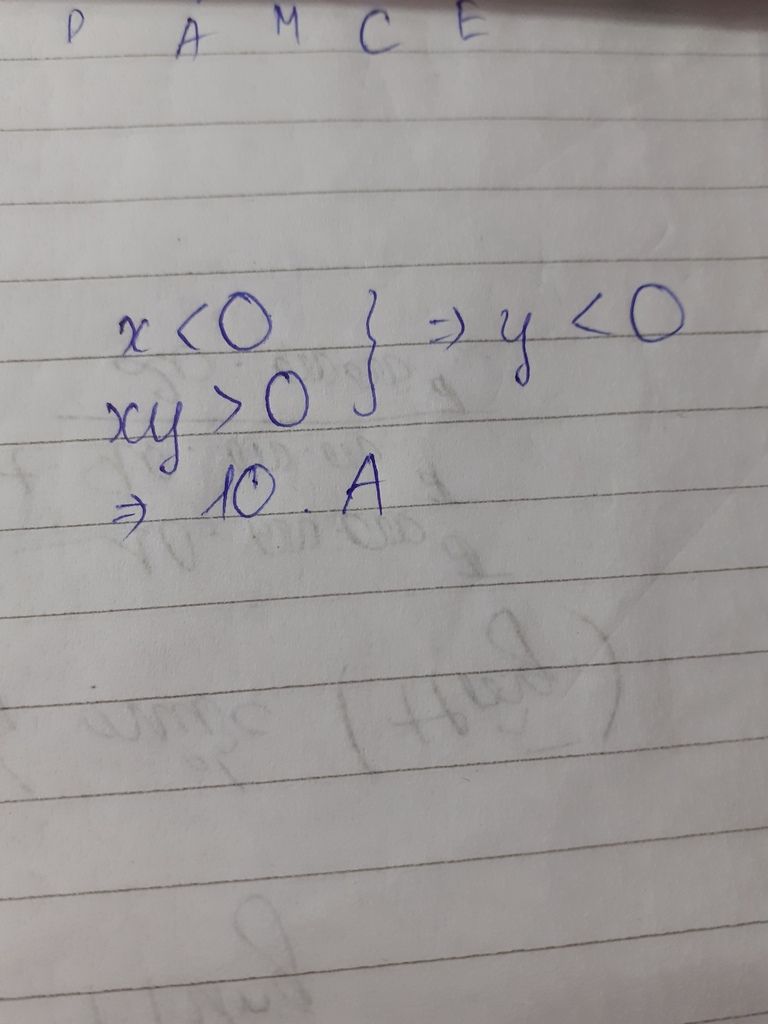 P A M C E
x < 0 } ⇒ y < 0
xy > 0
⇒ 10. A